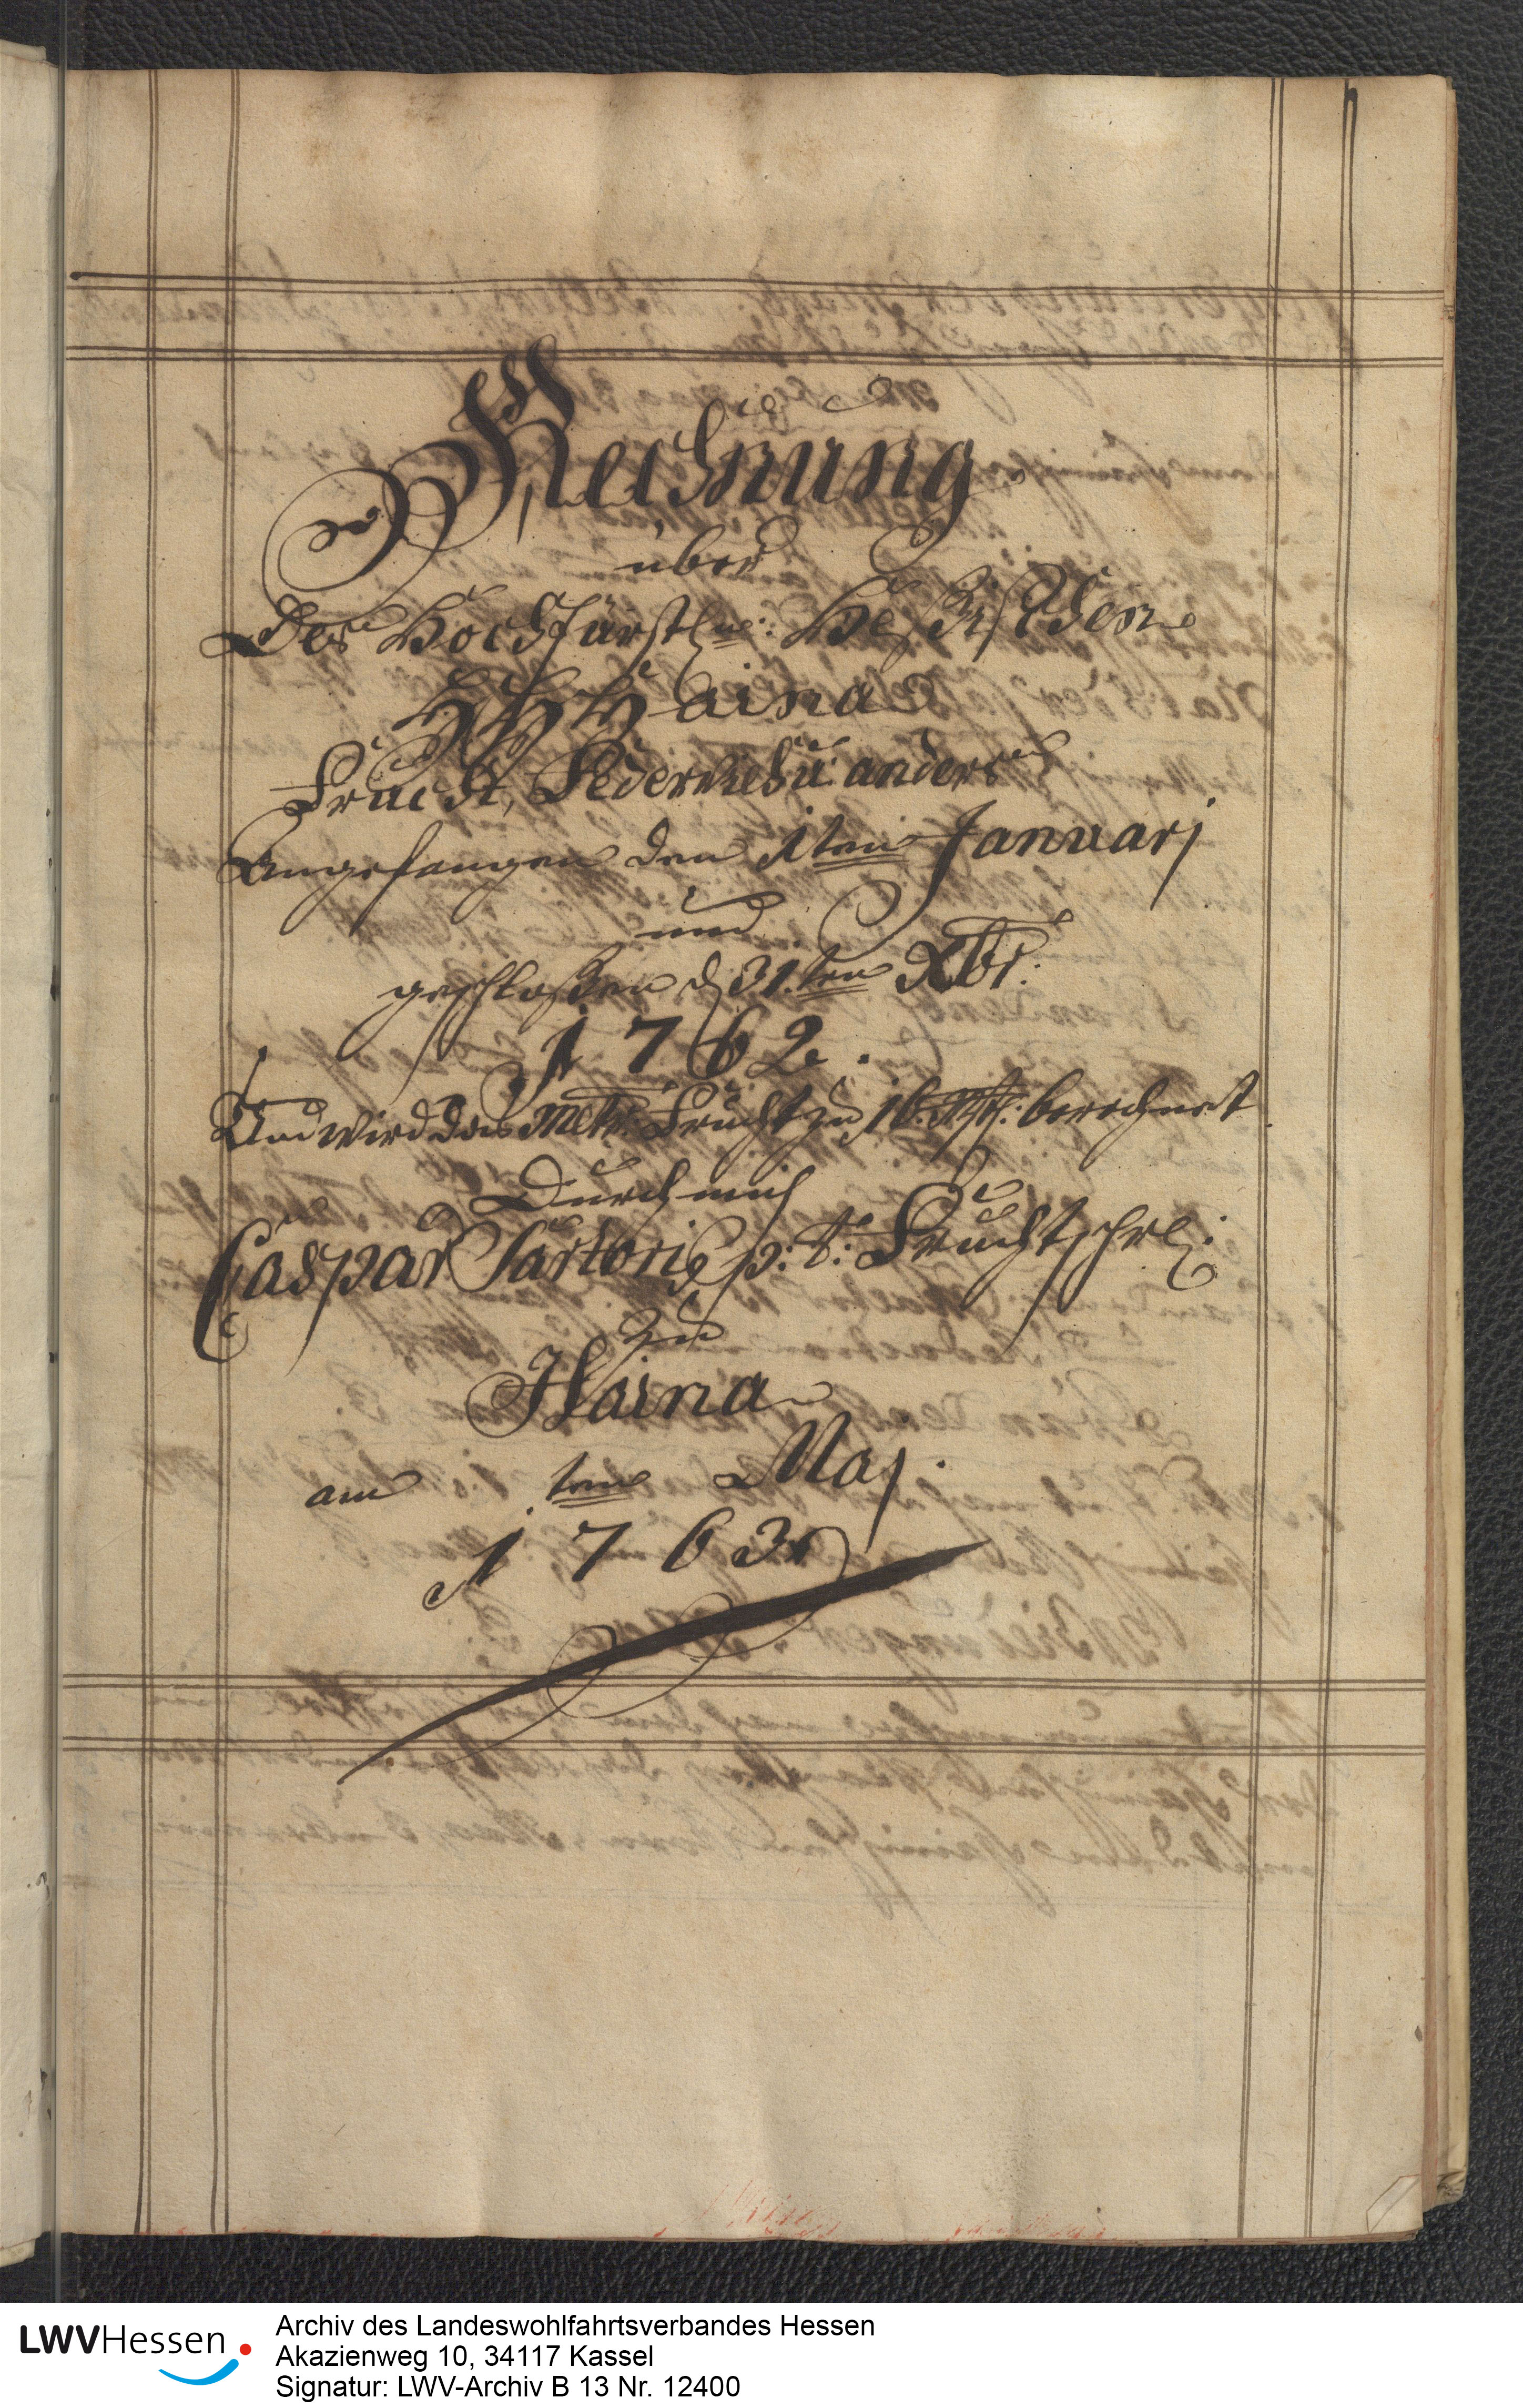 Rechnung
über
Der Hochfürstl:n Heßischen
HH Haina
Frucht, Federvieh u: anders
Angefangen den 1ten Januarj
und
geschloßen d 31.ten Xbr:
1762.
Und wird das Mött: Frucht zu 16. Mß: berechnet
Durch mich
Caspar Sartori p: t: Fruchtschrbr:
zu
Haina
am ten Maj.
1763
LWVHessen
Archiv des Landeswohlfahrtsverbandes Hessen
Akazienweg 10, 34117 Kassel
Signatur: LWV-Archiv B 13 Nr. 12400